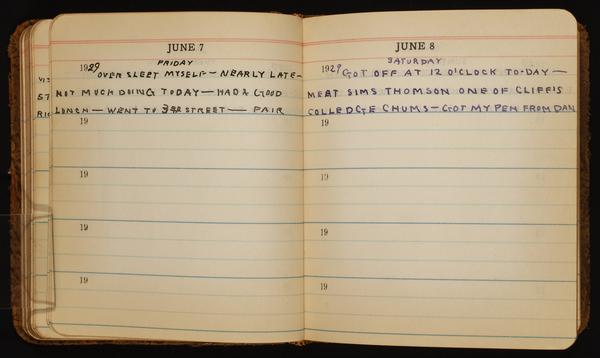 JUNE 7
FRIDAY
1929 OVER SLEPT MYSELF - NEARLY LATE -
NOT MUCH DOING TODAY - HAD A GOOD
LUNCH - WENT TO STREET - FAIR
19
19
19
19
JUNE 8
SATURDAY
1929 GOT OFF AT 12 O'CLOCK TO-DAY -
MEAT SIMS THOMSON ONE OF CLIFF'S
COLLEDGE CHUMS - GOT MY PEN FROM DAN
19
19
19
19